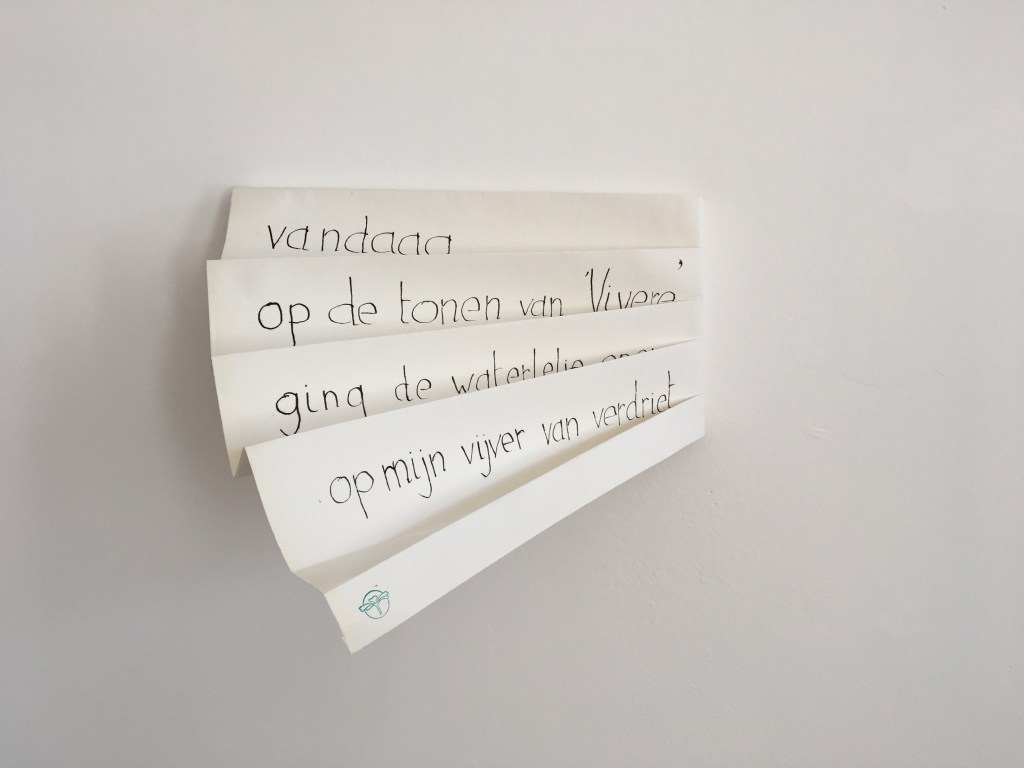 vandaag
op de tonen van 'Vivere'
ging de waterlelie open
op mijn vijver van verdriet